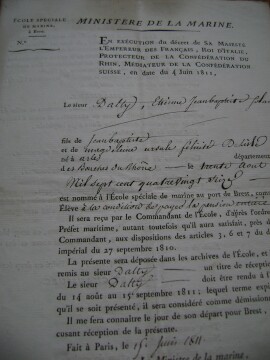 ÉCOLE SPÉCIALE
DE MARINE,
à Brest.
N.°
MINISTÈRE DE LA MARINE.
EN exécution du décret de SA MAJESTÉ
L'EMPEREUR DES FRANÇAIS, ROI D'ITALIE,
PROTECTEUR DE LA CONFÉDÉRATION DU
RHIN, MÉDIATEUR DE LA CONFÉDÉRATION
SUISSE, en date du 4 Juin 1811,
Le sieur Datty, Etienne Jean baptiste
fils de Jean baptiste
et de magdeleine ursule félicité
né à arles département
des Bouches du Rhône le trente août
Mil sept cent quatre vingt Seize
est nommé à l'École spéciale de marine au port de Brest,
Élève à la condition de payer la pension entière.
Il sera reçu par le Commandant de l'École, d'après l'ordre
Préfet maritime, autant toutefois qu'il aura satisfait, pris
Commandant, aux dispositions des articles 3, 6 et 7 du
impérial du 27 septembre 1810.
La présente sera déposée dans les archives de l'École, et
remis au sieur Datty un titre de réception
Le sieur Datty devra être
du 14 août au 15 septembre 1811; lequel terme expi
qu'il se soit présenté, il sera considéré comme démission
Il me fera connaître le jour de son départ pour Brest,
cusant réception de la présente.
Fait à Paris, le 15 Juin 1811.
de la marine.